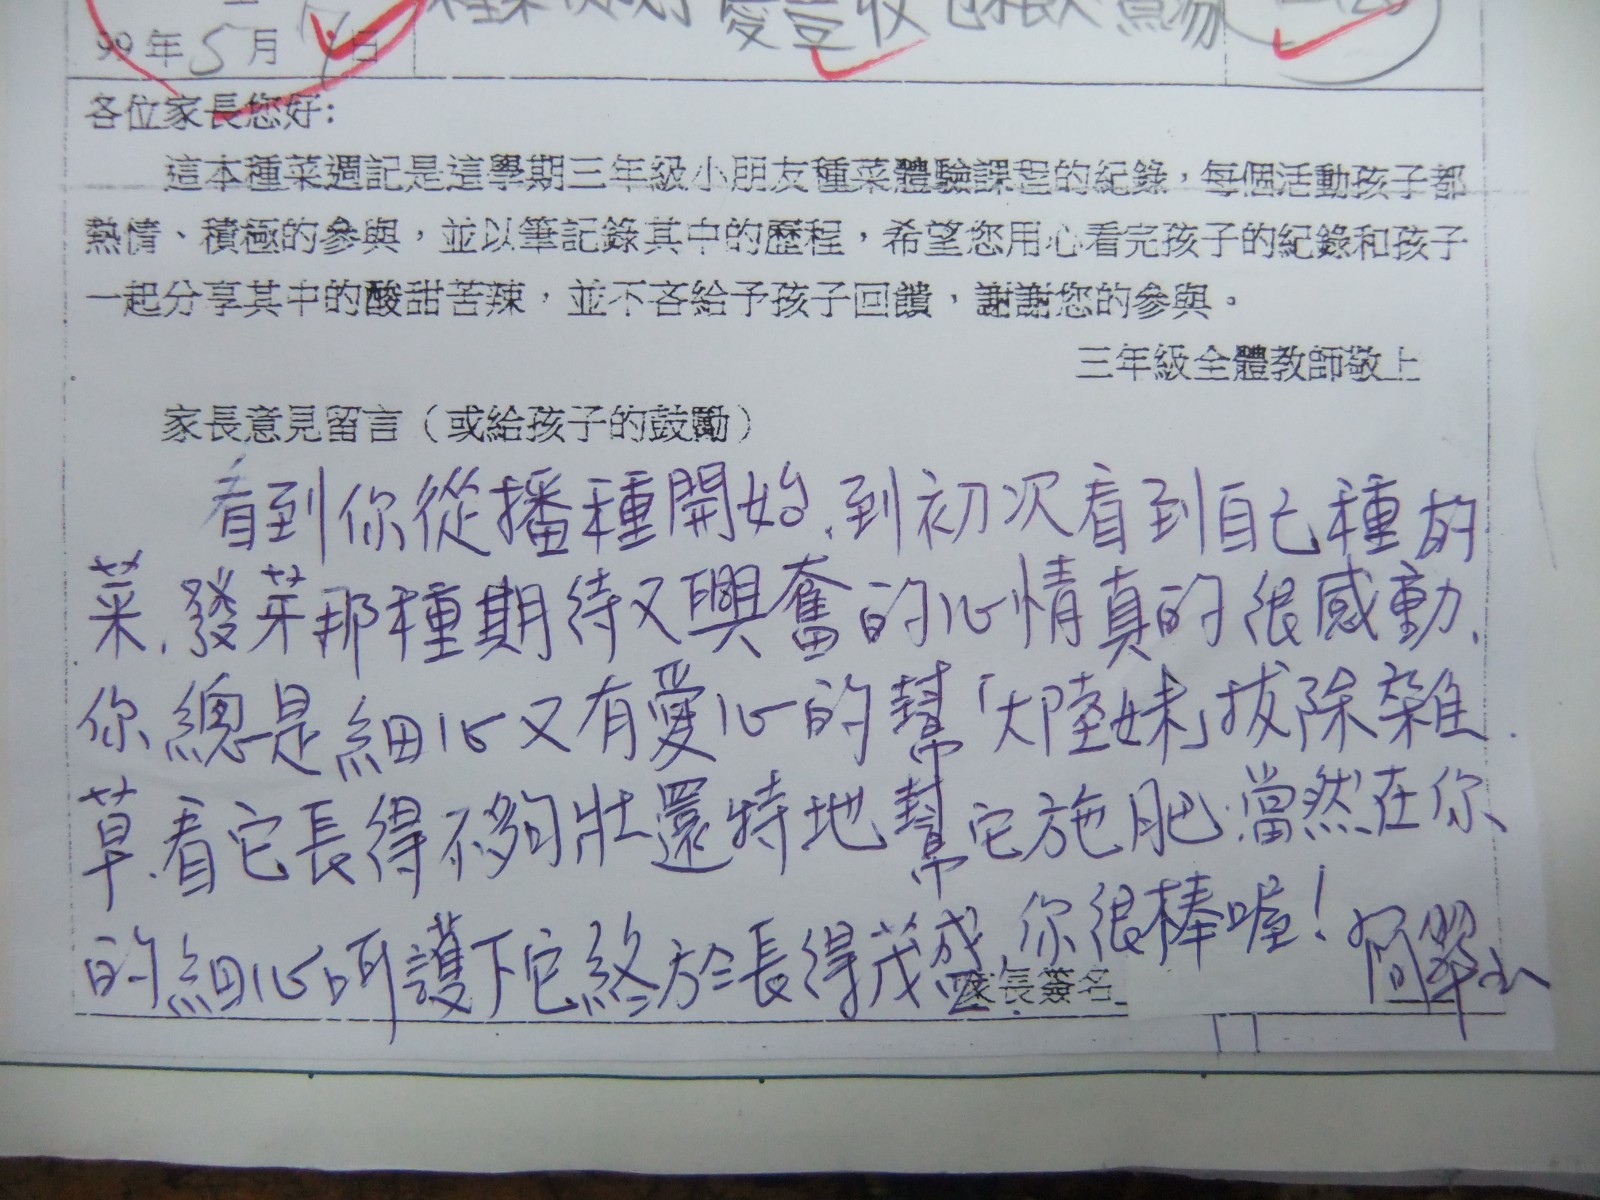 99年5月7日
各位家長您好:
這本種菜週記是這學期三年級小朋友種菜體驗課程的紀錄，每個活動孩子都
熱情、積極的參與，並以筆記錄其中的歷程，希望您用心看完孩子的紀錄和孩子
一起分享其中的酸甜苦辣，並不吝給予孩子回饋，謝謝您的參與。
三年級全體教師敬上
家長意見留言（或給孩子的鼓勵）
看到你從播種開始,到初次看到自己種的
菜,發芽那種期待又興奮的心情真的很感動,
你總是細心又有愛心的幫「大陸妹」拔除雜
草,看它長得不夠壯還特地幫它施肥,當然在你
的細心呵護下它終於長得茂盛,你很棒喔!
家長簽名